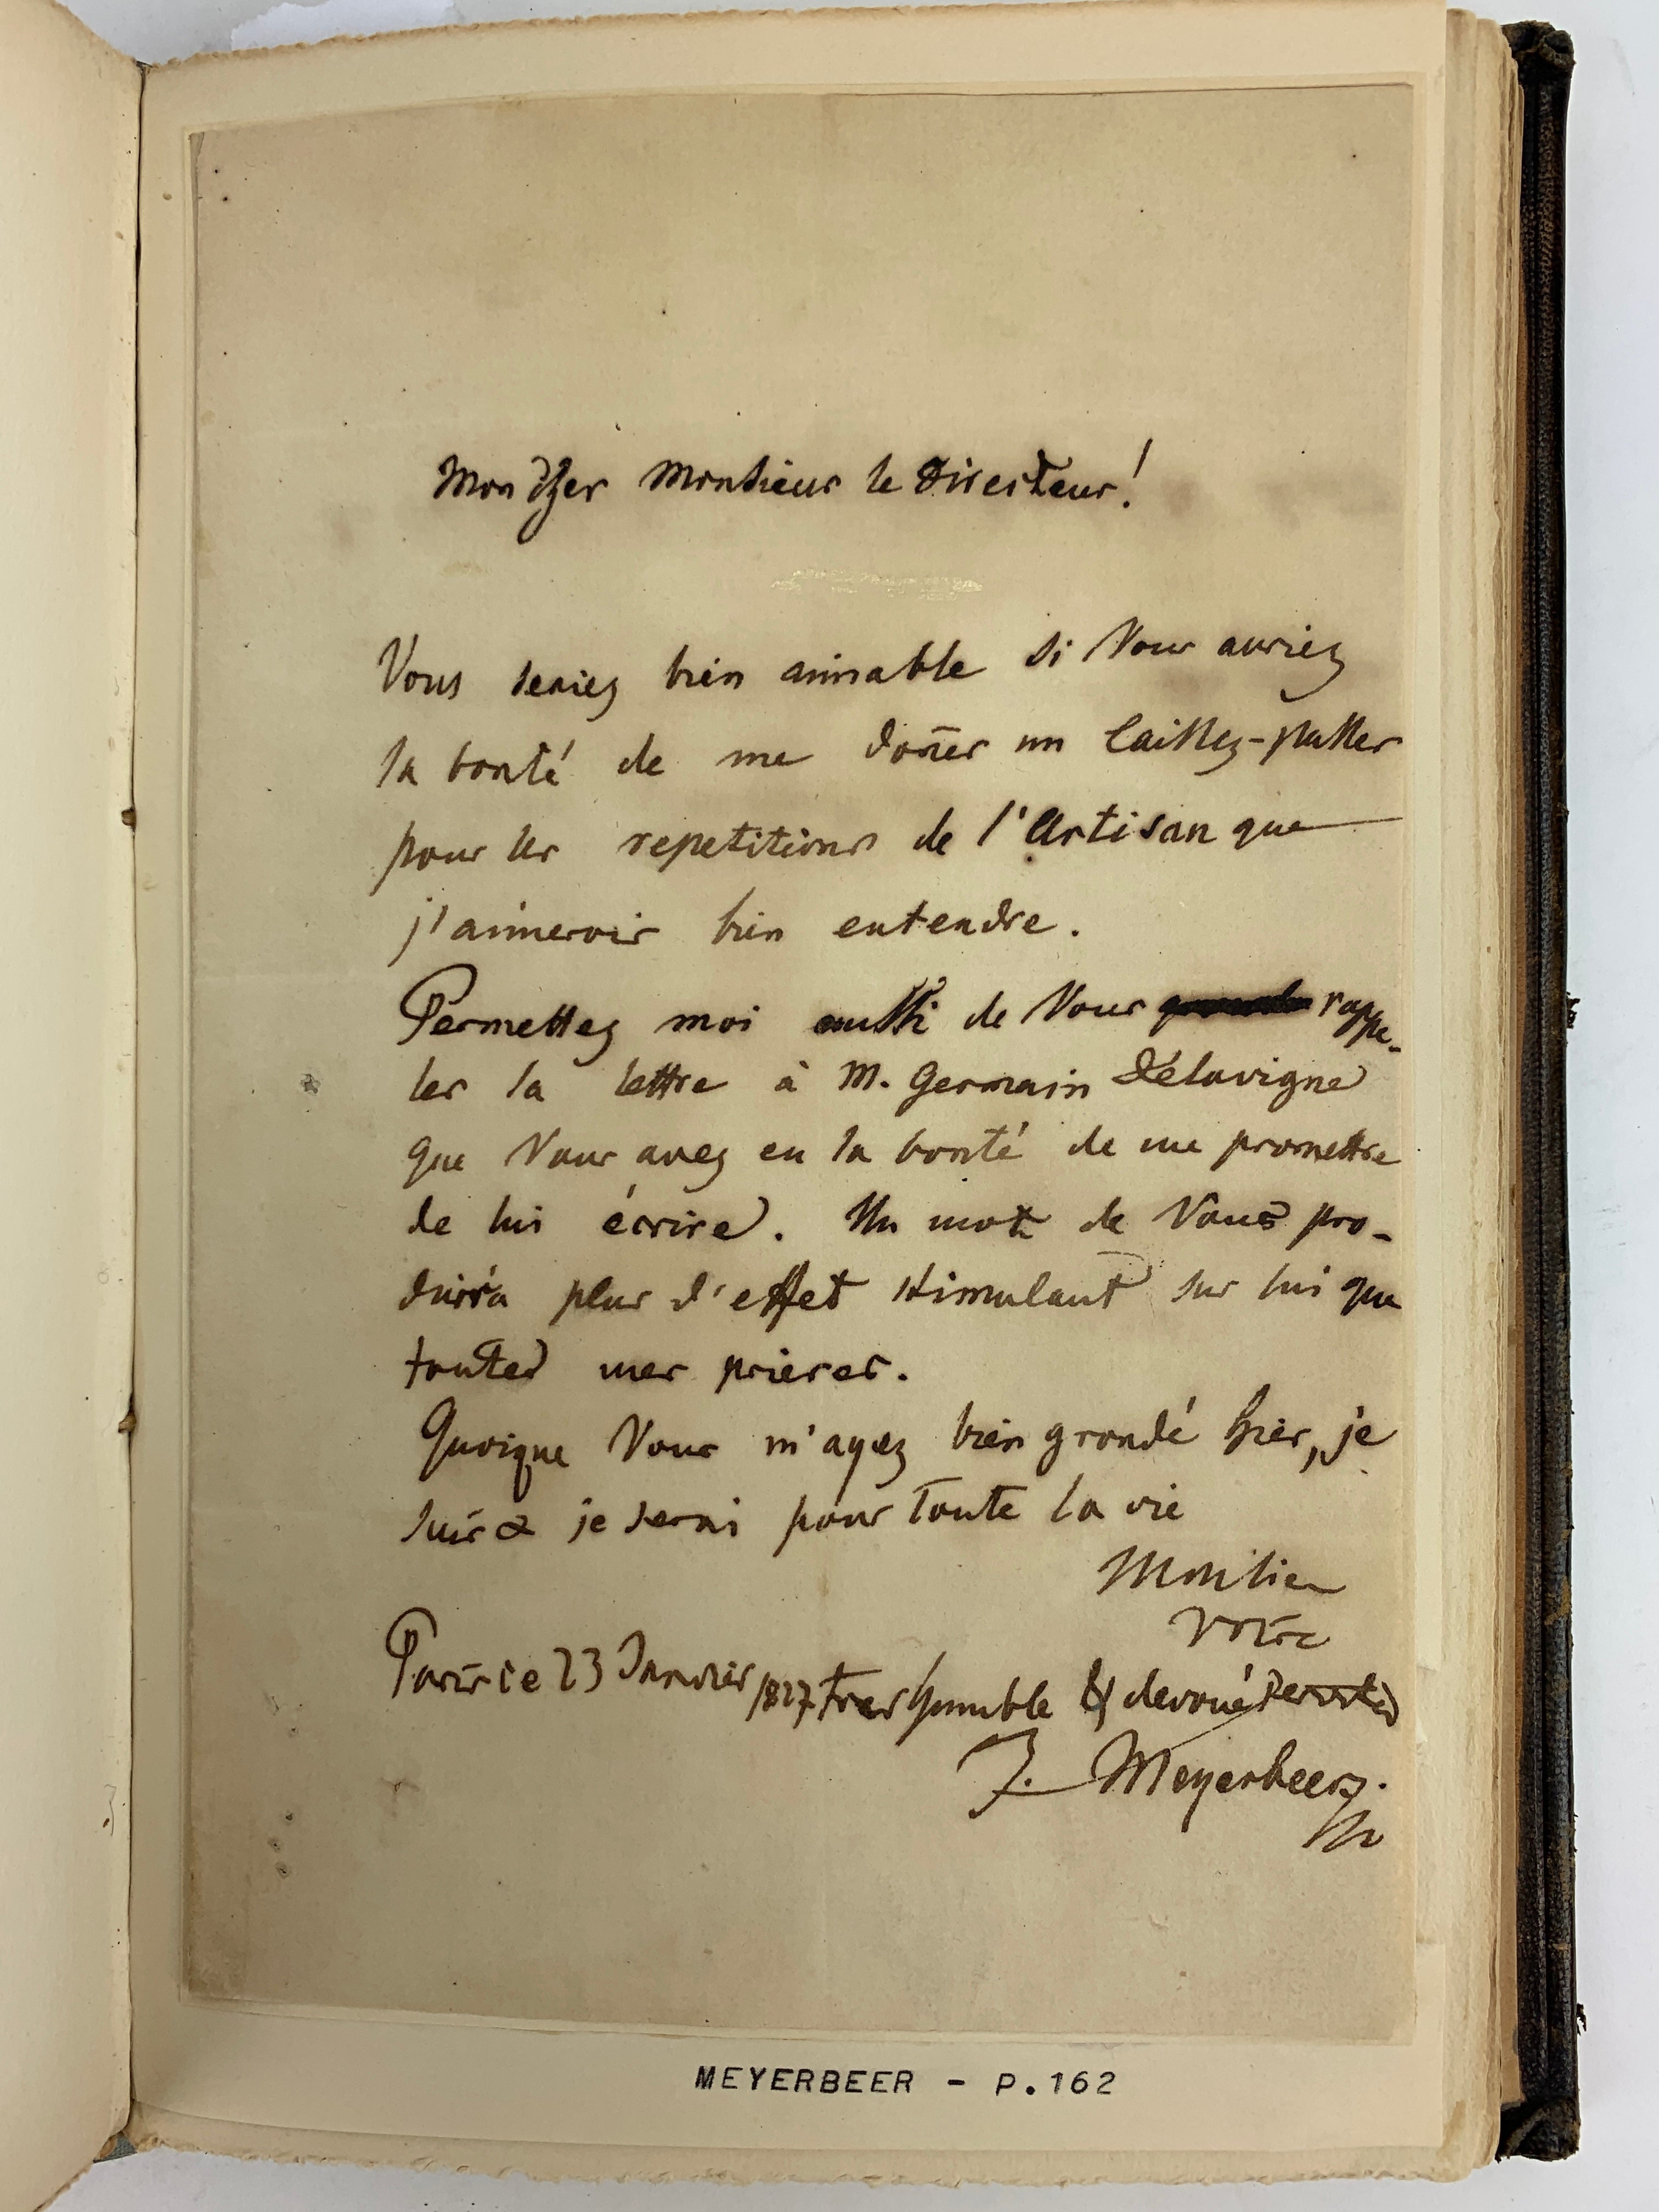 Mon cher Monsieur le Directeur!
Vous seriez bien aimable si Vous auriez
la bonté de me doñer un laissez-passer
pour les repetitions de l'Artisan que
j'aimerois bien entendre.
Permettez moi aussi de Vous rappe-
ler la lettre à M. Germain Délavigne
que Vous avez eu la bonté de me promettre
de lui écrire. Un mot de Vous pro-
duira plus d'effet stimulant sur lui que
toutes mes prieres.
Quoique Vous m'ayez bien grondé hier, je
suis & je serai pour toute la vie
Monsieur
votre
Paris ce 23 Janvier 1827 tres humble & devoué
J. Meyerbeer.
MEYERBEER - P.162